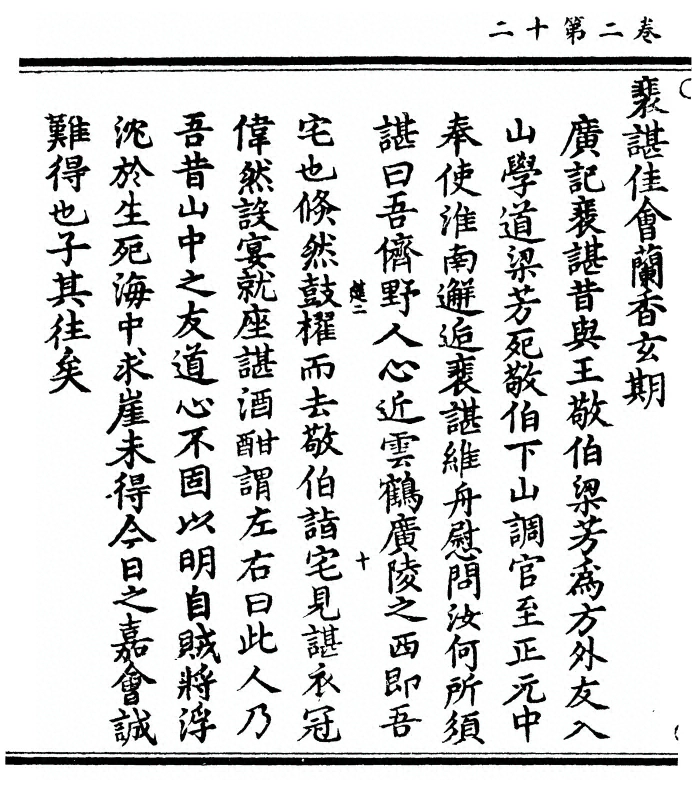 卷二第十二
裴諶佳會蘭香玄期
廣記裴諶昔與王敬伯梁芳爲方外友入
山學道梁芳死敬伯下山調官至正元中
奉使淮南邂逅裴諶維舟慰問汝何所須
諶曰吾儕野人心近雲鶴廣陵之西即吾
宅也倐然鼓櫂而去敬伯詣宅見諶衣冠
偉然設宴就座諶酒酣謂左右曰此人乃
吾昔山中之友道心不固以明自賊將浮
沈於生死海中求崖未得今日之嘉會誠
難得也子其往矣
十